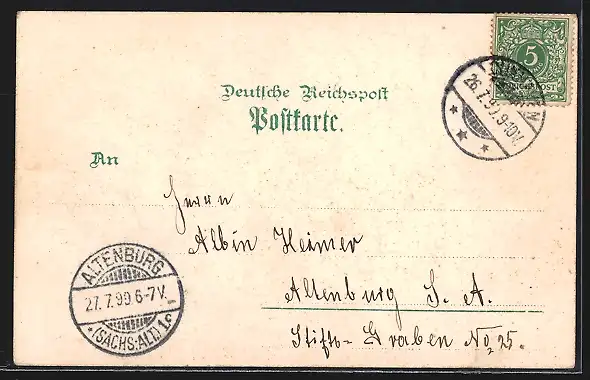 5
REICHSPOST
26.7.99.9-10V.
Deutsche Reichspost
Postkarte.
An
Herrn
Albin Heimer
Altenburg S. A.
Stifts-Graben No 25.
ALTENBURG
27.7.99.6-7V.
*(SACHS:ALT.) 1c